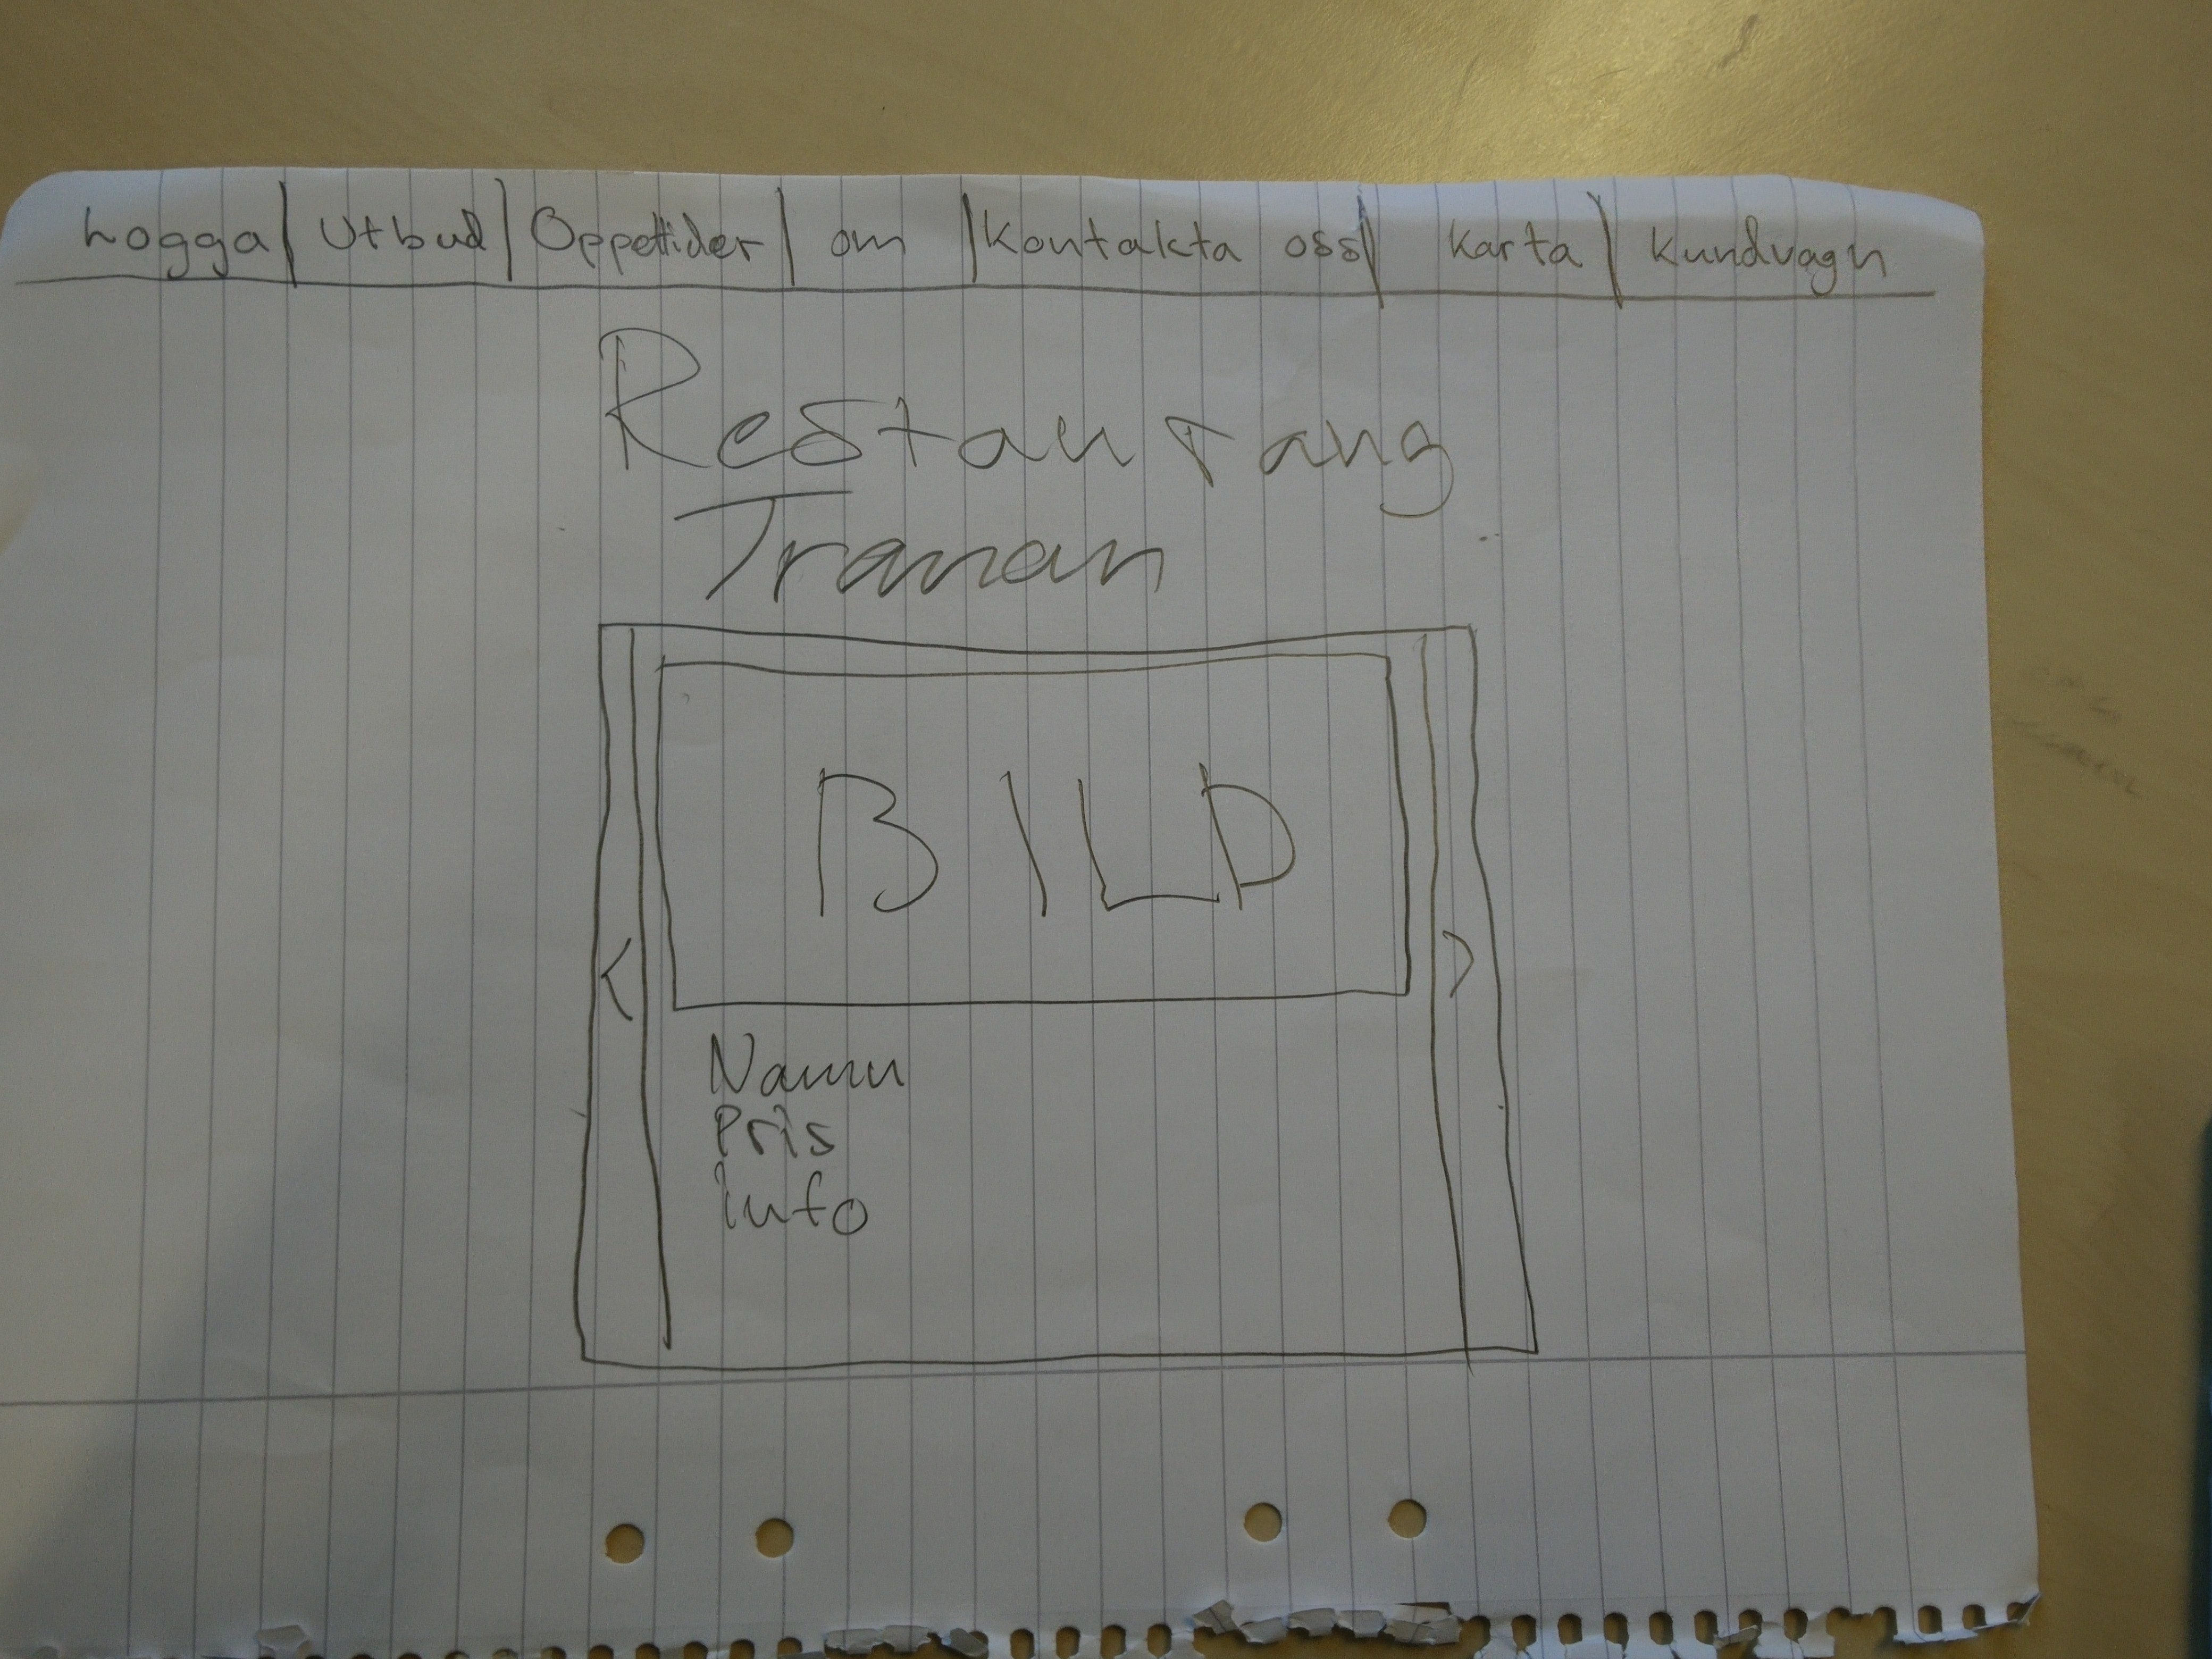 hogga | Utbud | Öppettider | om | Kontakta oss | Karta | Kundvagn
Restaurang
Tranan
<
BILD
>
Namn
Pris
info